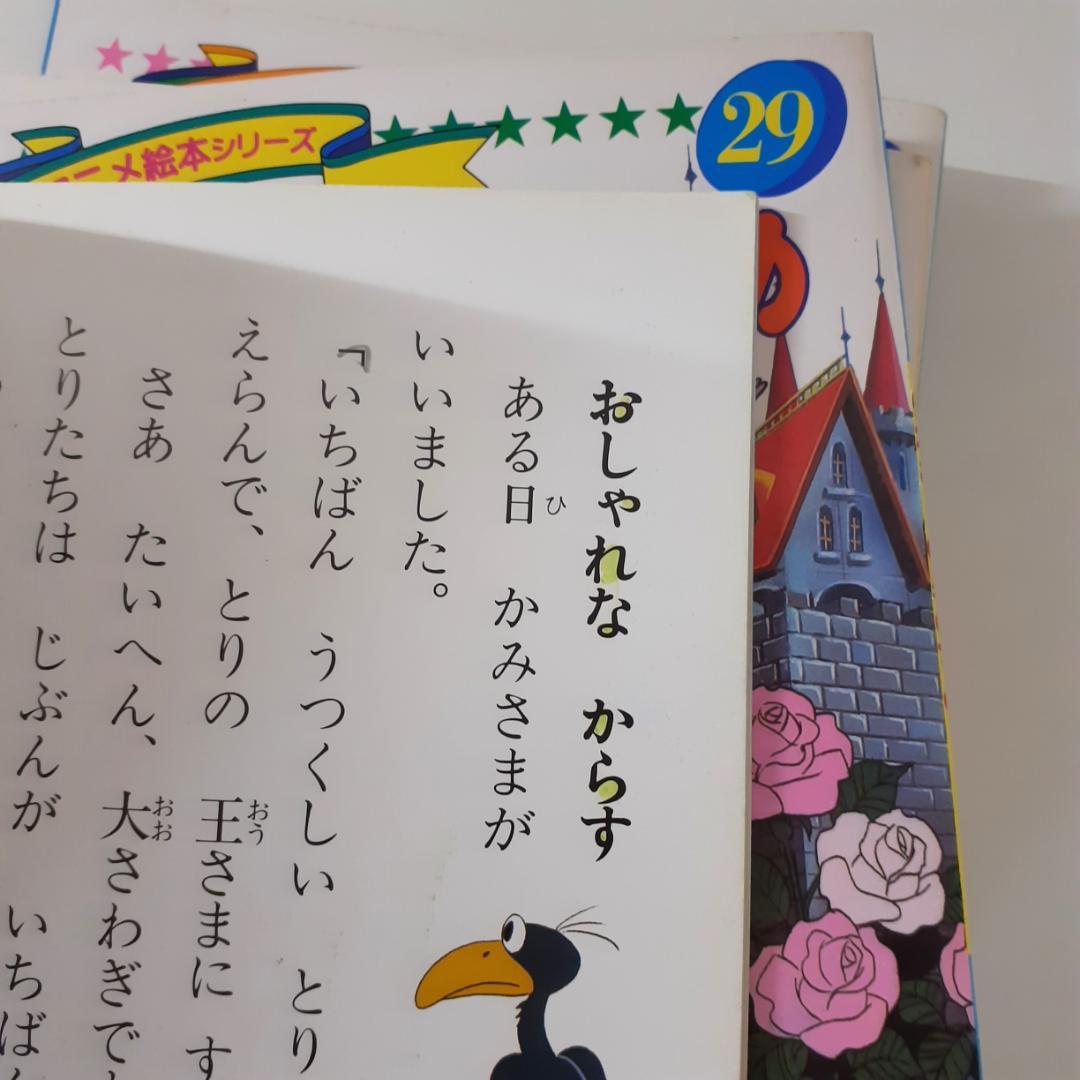 アニメ絵本シリーズ
29
おしゃれな からす
ある日 かみさまが
ひ
いいました。
「いちばん うつくしい とり
えらんで、とりの 王さまに す
おう
さあ たいへん、大さわぎで
おお
とりたちは じぶんが いちばん